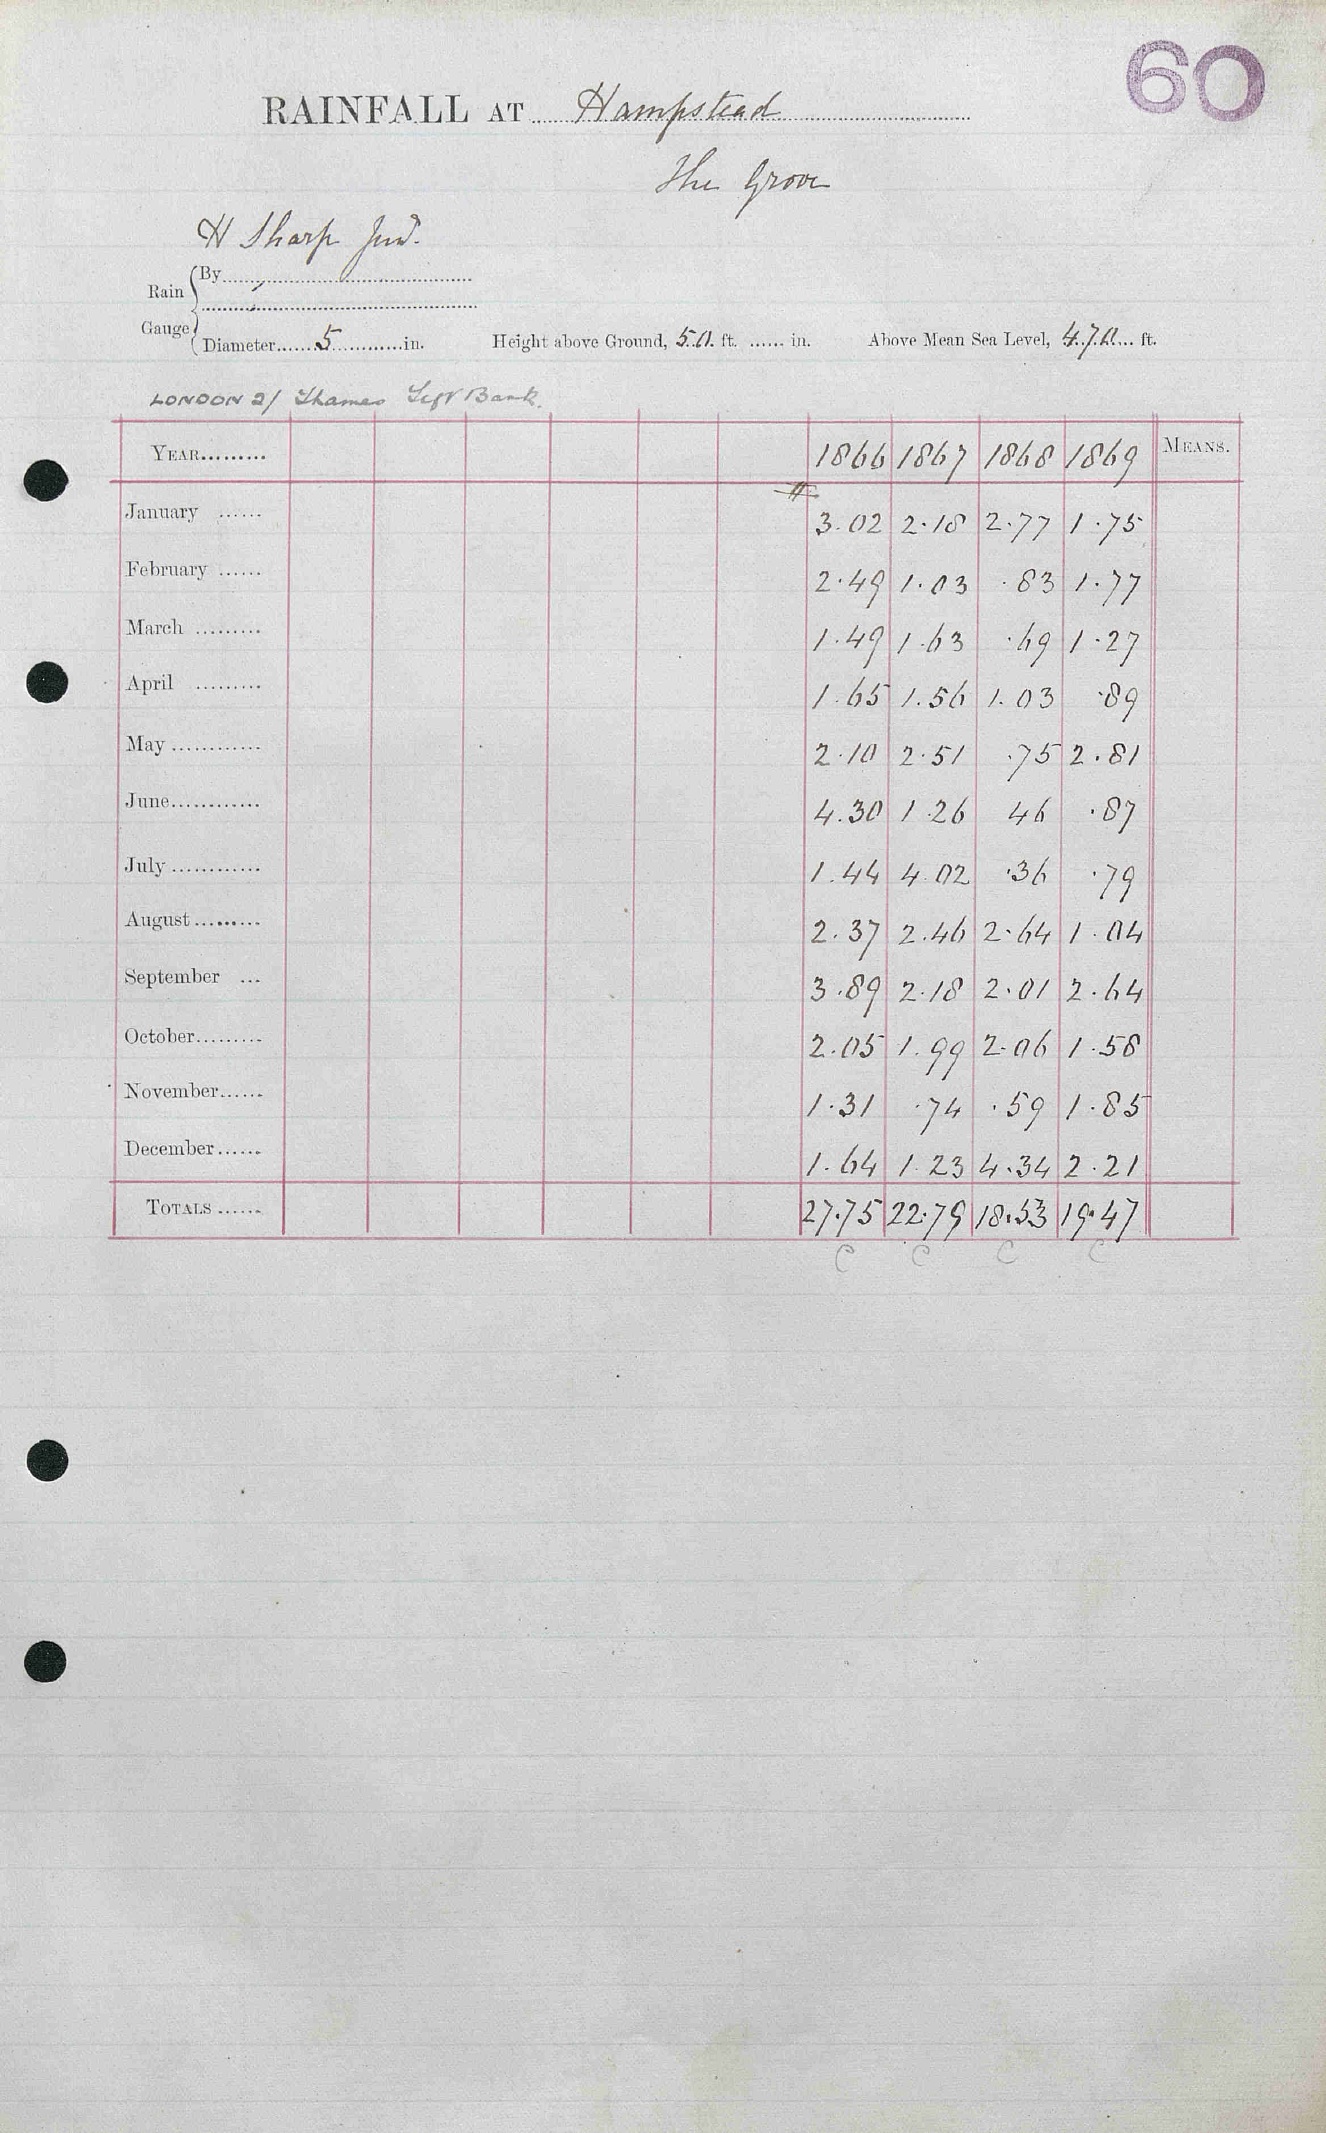 60
RAINFALL AT Hampstead
The Grove
H Sharp Jun.
Rain Gauge
By
Diameter 5 in. Height above Ground, 5.0. ft. in. Above Mean Sea Level, 470 ft.
LONDON 2/ Thames Left Bank.
YEAR 1866 1867 1868 1869 MEANS.
January 3.02 2.18 2.77 1.75
February 2.49 1.03 .83 1.77
March 1.49 1.63 .69 1.27
April 1.65 1.56 1.03 .89
May 2.10 2.51 .75 2.81
June 4.30 1.26 46 .87
July 1.44 4.02 .36 .79
August 2.37 2.46 2.64 1.04
September 3.89 2.18 2.01 2.64
October 2.05 1.99 2.06 1.58
November 1.31 .74 .59 1.85
December 1.64 1.23 4.34 2.21
TOTALS 27.75 22.79 18.53 19.47
C C C C